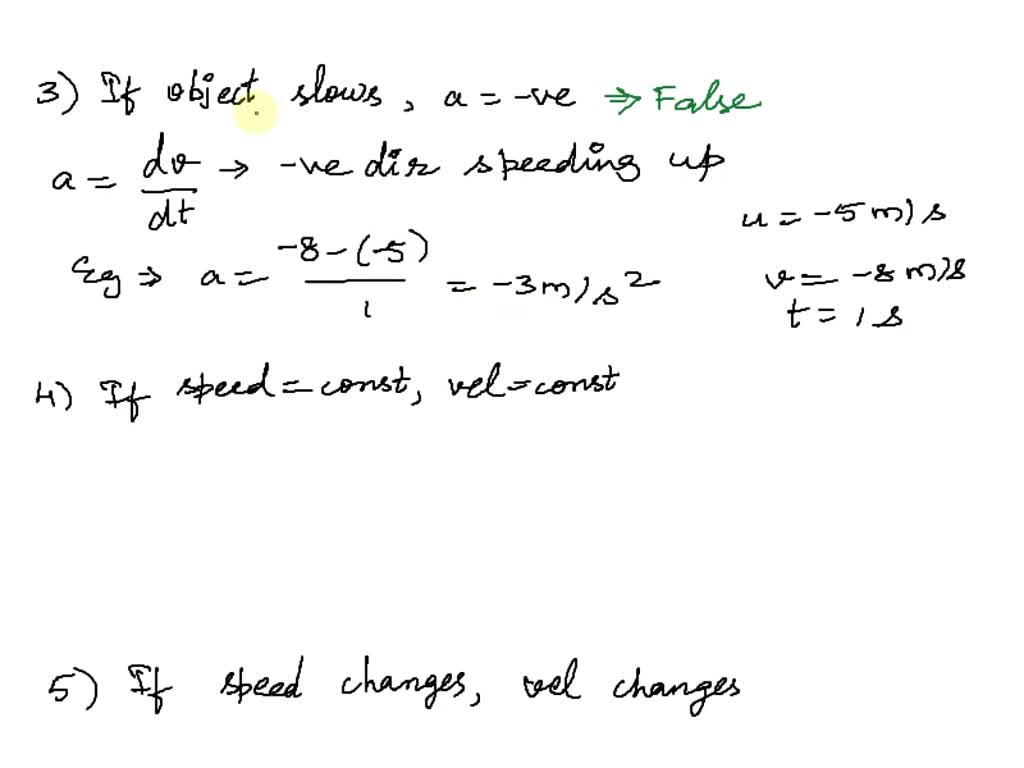 3) If object slows, a = -ve ⇒ False
a = dv/dt → -ve dir speeding up
u = -5 m/s
Eg ⇒ a = -8 - (-5) / 1 = -3 m/s²
v = -8 m/s
t = 1 s
4) If speed = const, vel = const
5) If speed changes, vel changes